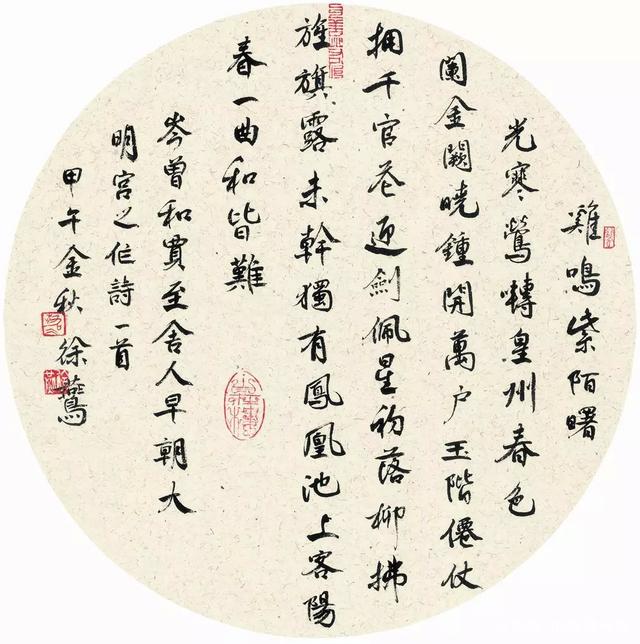 雞鳴紫陌曙
光寒鶯轉皇州春色
闌金闕曉鍾開萬户玉階僊仗
拥千官花迎劍佩星初落柳拂
旌旗露未幹獨有鳳凰池上客陽
春一曲和皆難
岑曾和賈至舍人早朝大
明宮之作詩一首
甲午金秋徐鷰